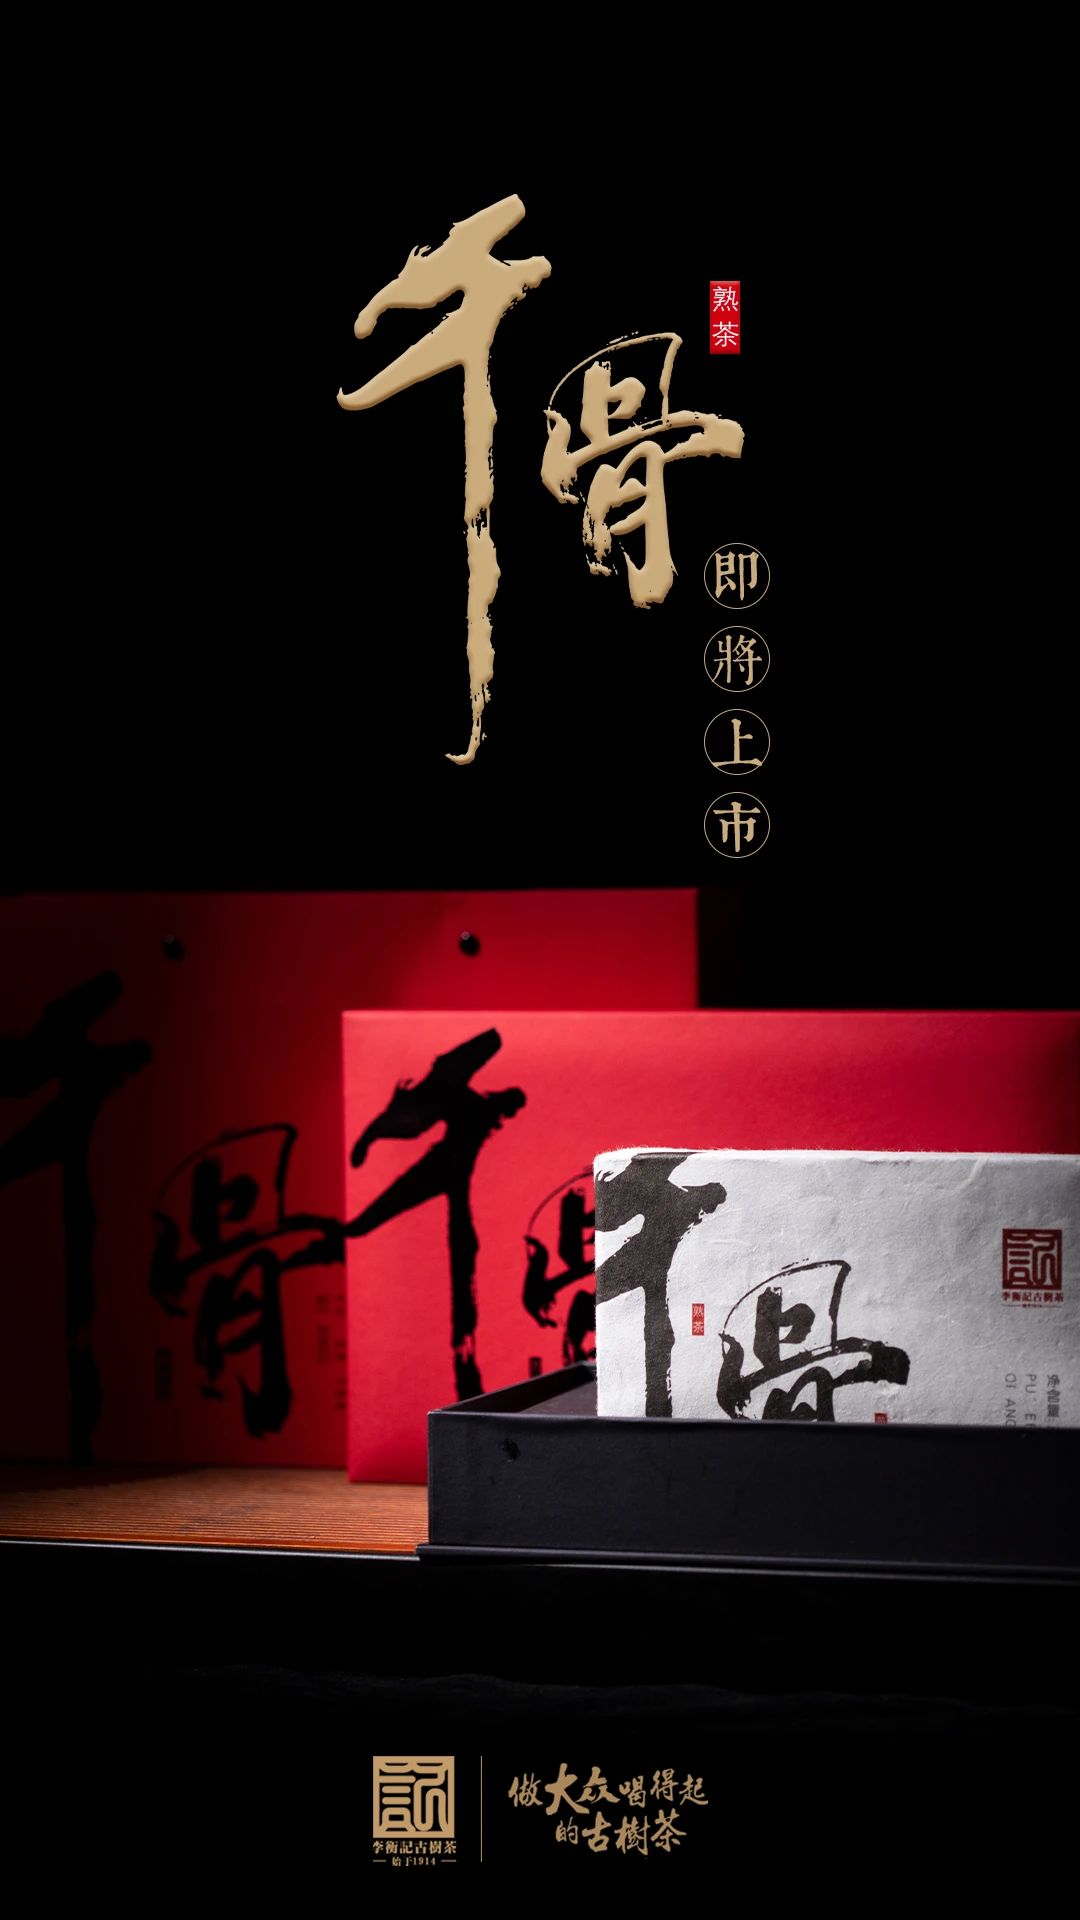 千骨
熟茶
即將上市
千骨
千骨
千骨
熟茶
記
李衡記古樹茶
净含量
記
李衡記古樹茶
始于1914
做大众喝得起
的古樹茶